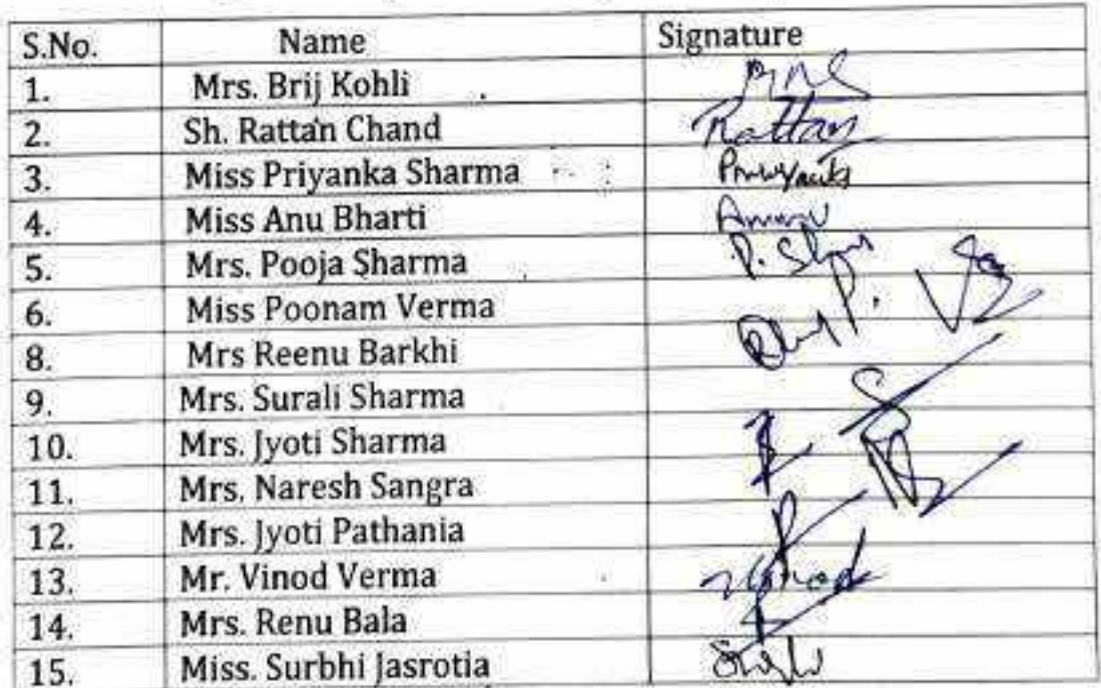 S.No. Name Signature
1. Mrs. Brij Kohli
2. Sh. Rattan Chand Rattan
3. Miss Priyanka Sharma
4. Miss Anu Bharti
5. Mrs. Pooja Sharma
6. Miss Poonam Verma
8. Mrs Reenu Barkhi
9. Mrs. Surali Sharma
10. Mrs. Jyoti Sharma
11. Mrs. Naresh Sangra
12. Mrs. Jyoti Pathania
13. Mr. Vinod Verma
14. Mrs. Renu Bala
15. Miss. Surbhi Jasrotia